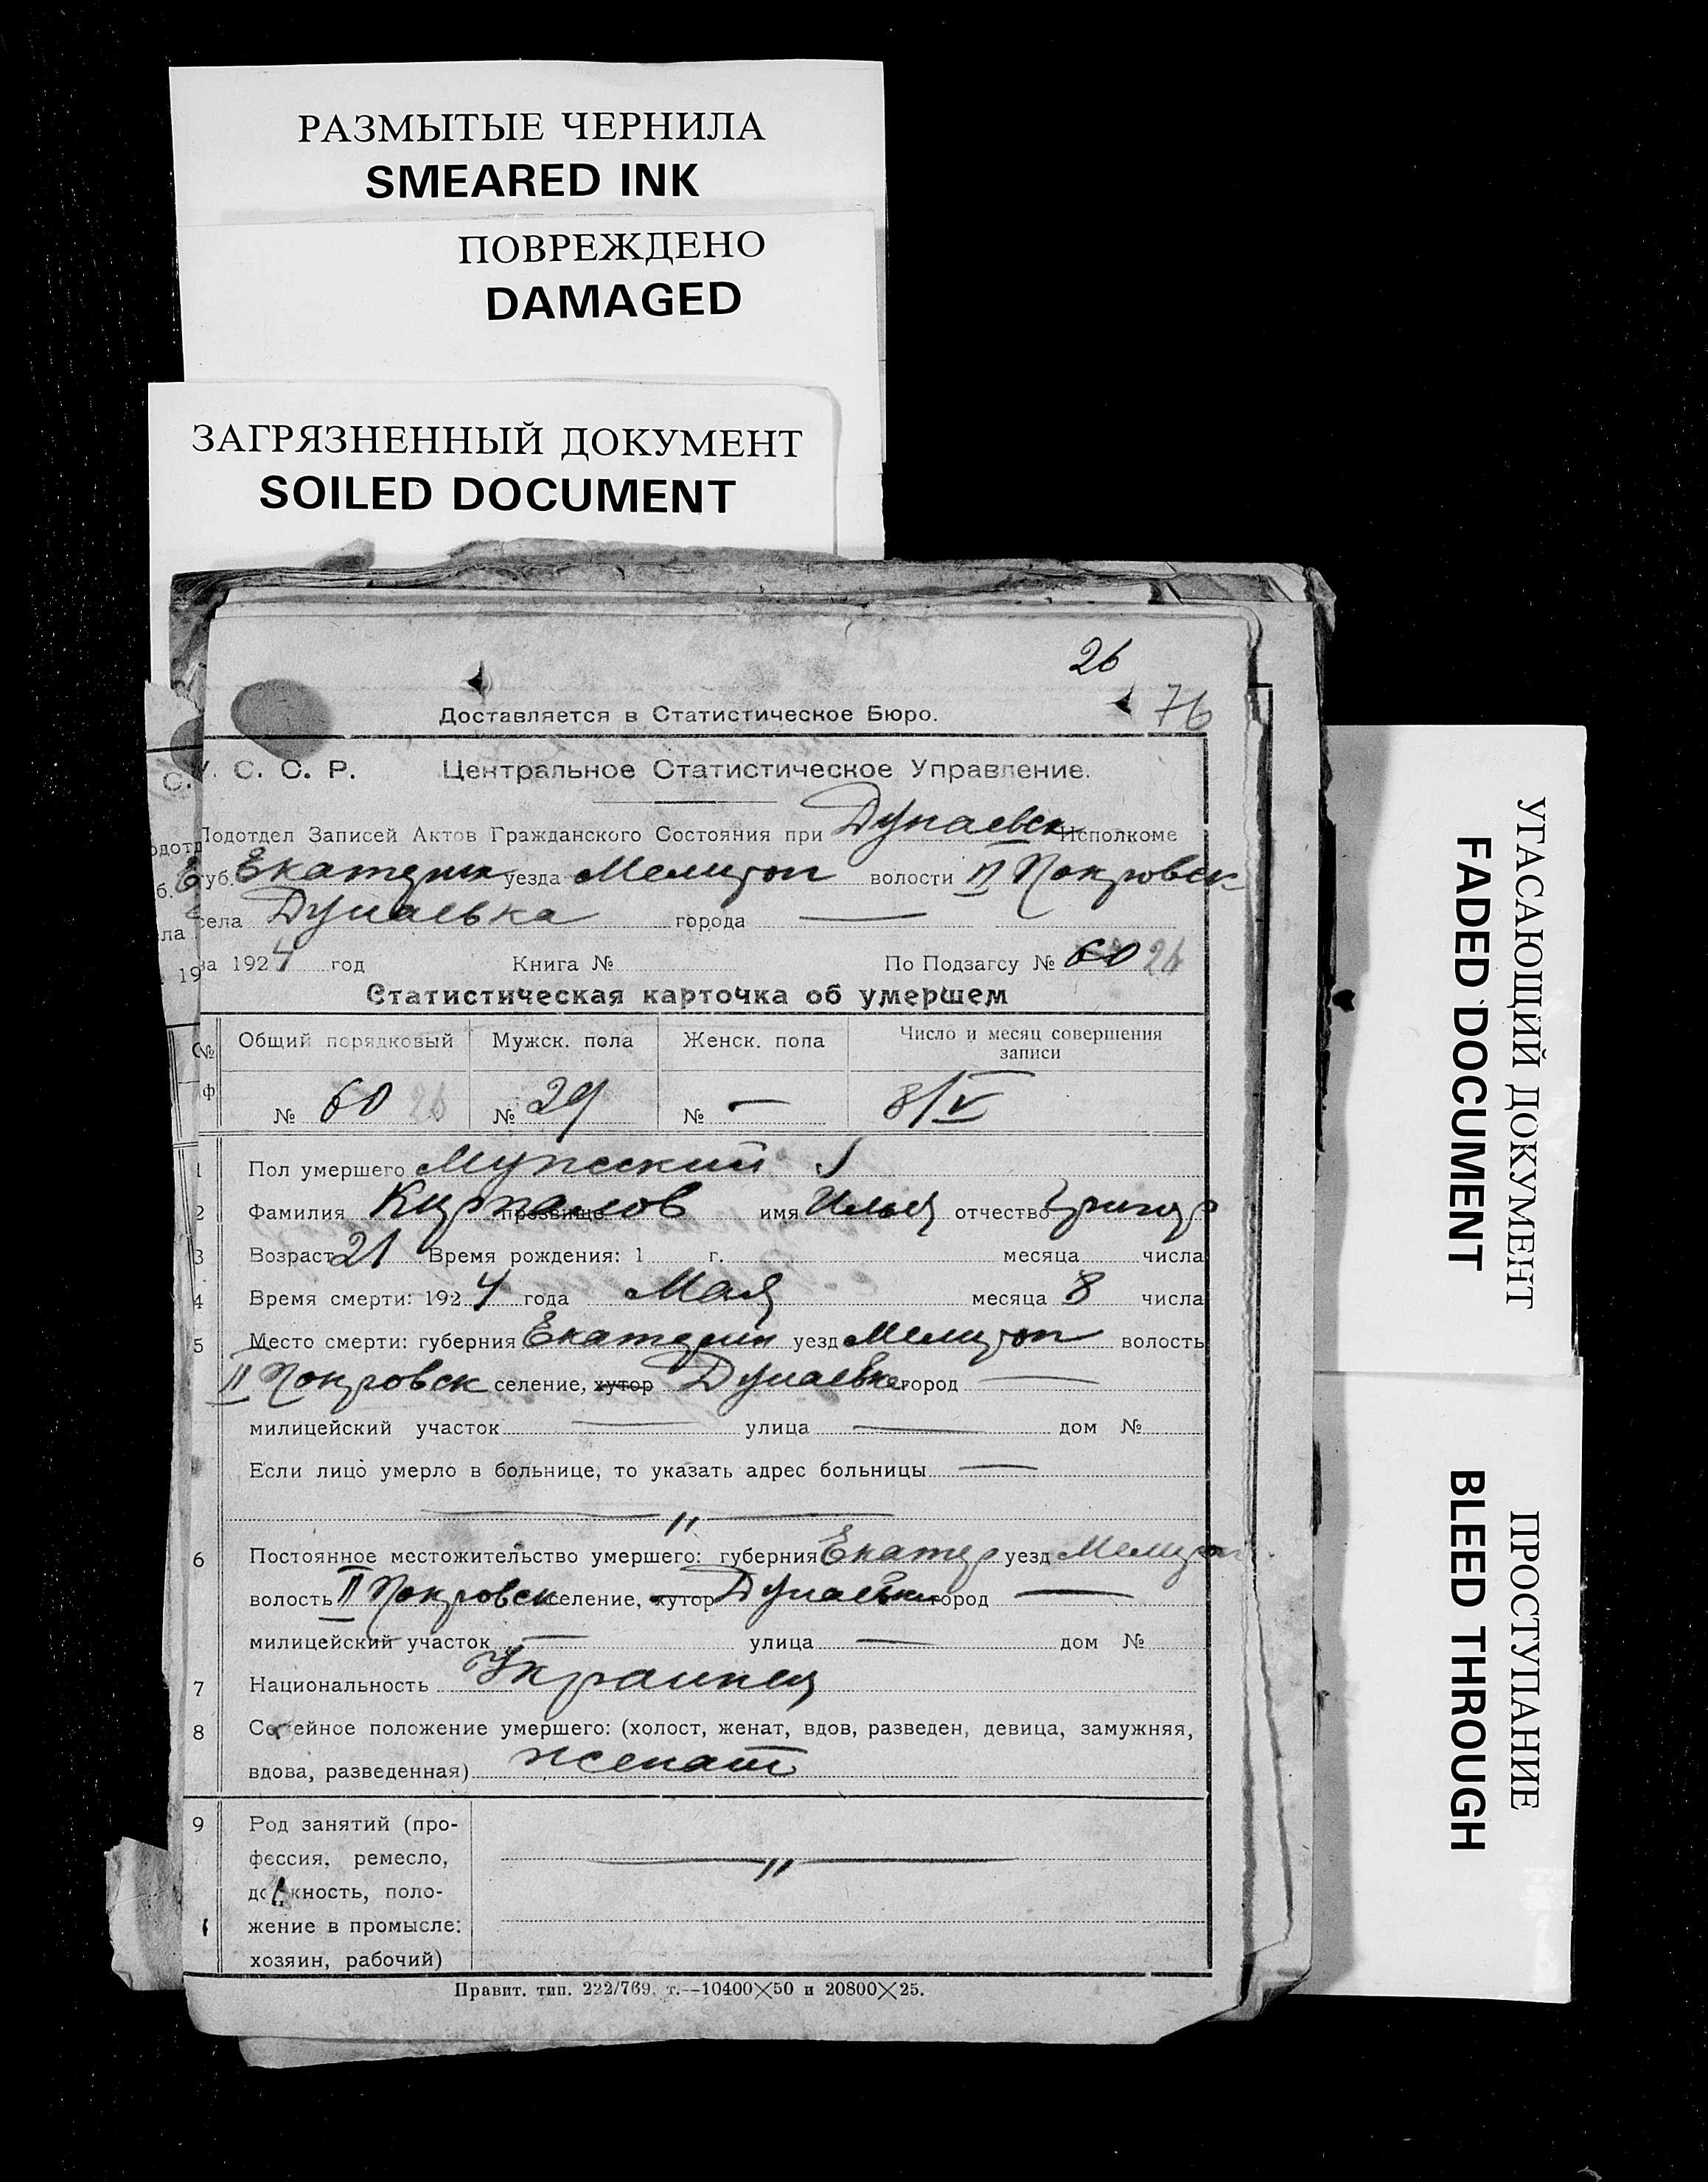 РАЗМЫТЫЕ ЧЕРНИЛА
SMEARED INK
ПОВРЕЖДЕНО
DAMAGED
ЗАГРЯЗНЕННЫЙ ДОКУМЕНТ
SOILED DOCUMENT
26
76
Доставляется в Статистическое Бюро.
У. С. С. Р. Центральное Статистическое Управление.
Подотдел Записей Актов Гражданского Состояния при Дунаевск Исполкоме
Губ. Екатерин уезда Мелитоп волости II Покровск
села Дунаевка города —
за 1924 год Книга № По Подзагсу № 60 26
Статистическая карточка об умершем
Общий порядковый Мужск. пола Женск. пола Число и месяц совершения
записи
№ 60 26 № 29 № — 8/V
1 Пол умершего Мужеский
2 Фамилия прозвище имя Илья отчество Григор
3 Возраст 21 Время рождения: 1 г. месяца числа
4 Время смерти: 1924 года Мая месяца 8 числа
5 Место смерти: губерния Екатерин уезд Мелитоп волость
II Покровск селение, хутор Дунаевка город —
милицейский участок — улица — дом №
Если лицо умерло в больнице, то указать адрес больницы —
— " —
6 Постоянное местожительство умершего: губерния Екатер уезд Мелитоп
волость II Покровск селение, хутор Дунаевка город —
милицейский участок — улица — дом №
7 Национальность Украинец
8 Семейное положение умершего: (холост, женат, вдов, разведен, девица, замужняя,
вдова, разведенная) женат
9 Род занятий (про-
фессия, ремесло, — " —
должность, поло-
жение в промысле:
хозяин, рабочий)
Правит. тип. 222/769. т.—10400×50 и 20800×25.
УГАСАЮЩИЙ ДОКУМЕНТ
FADED DOCUMENT
ПРОСТУПАНИЕ
BLEED THROUGH